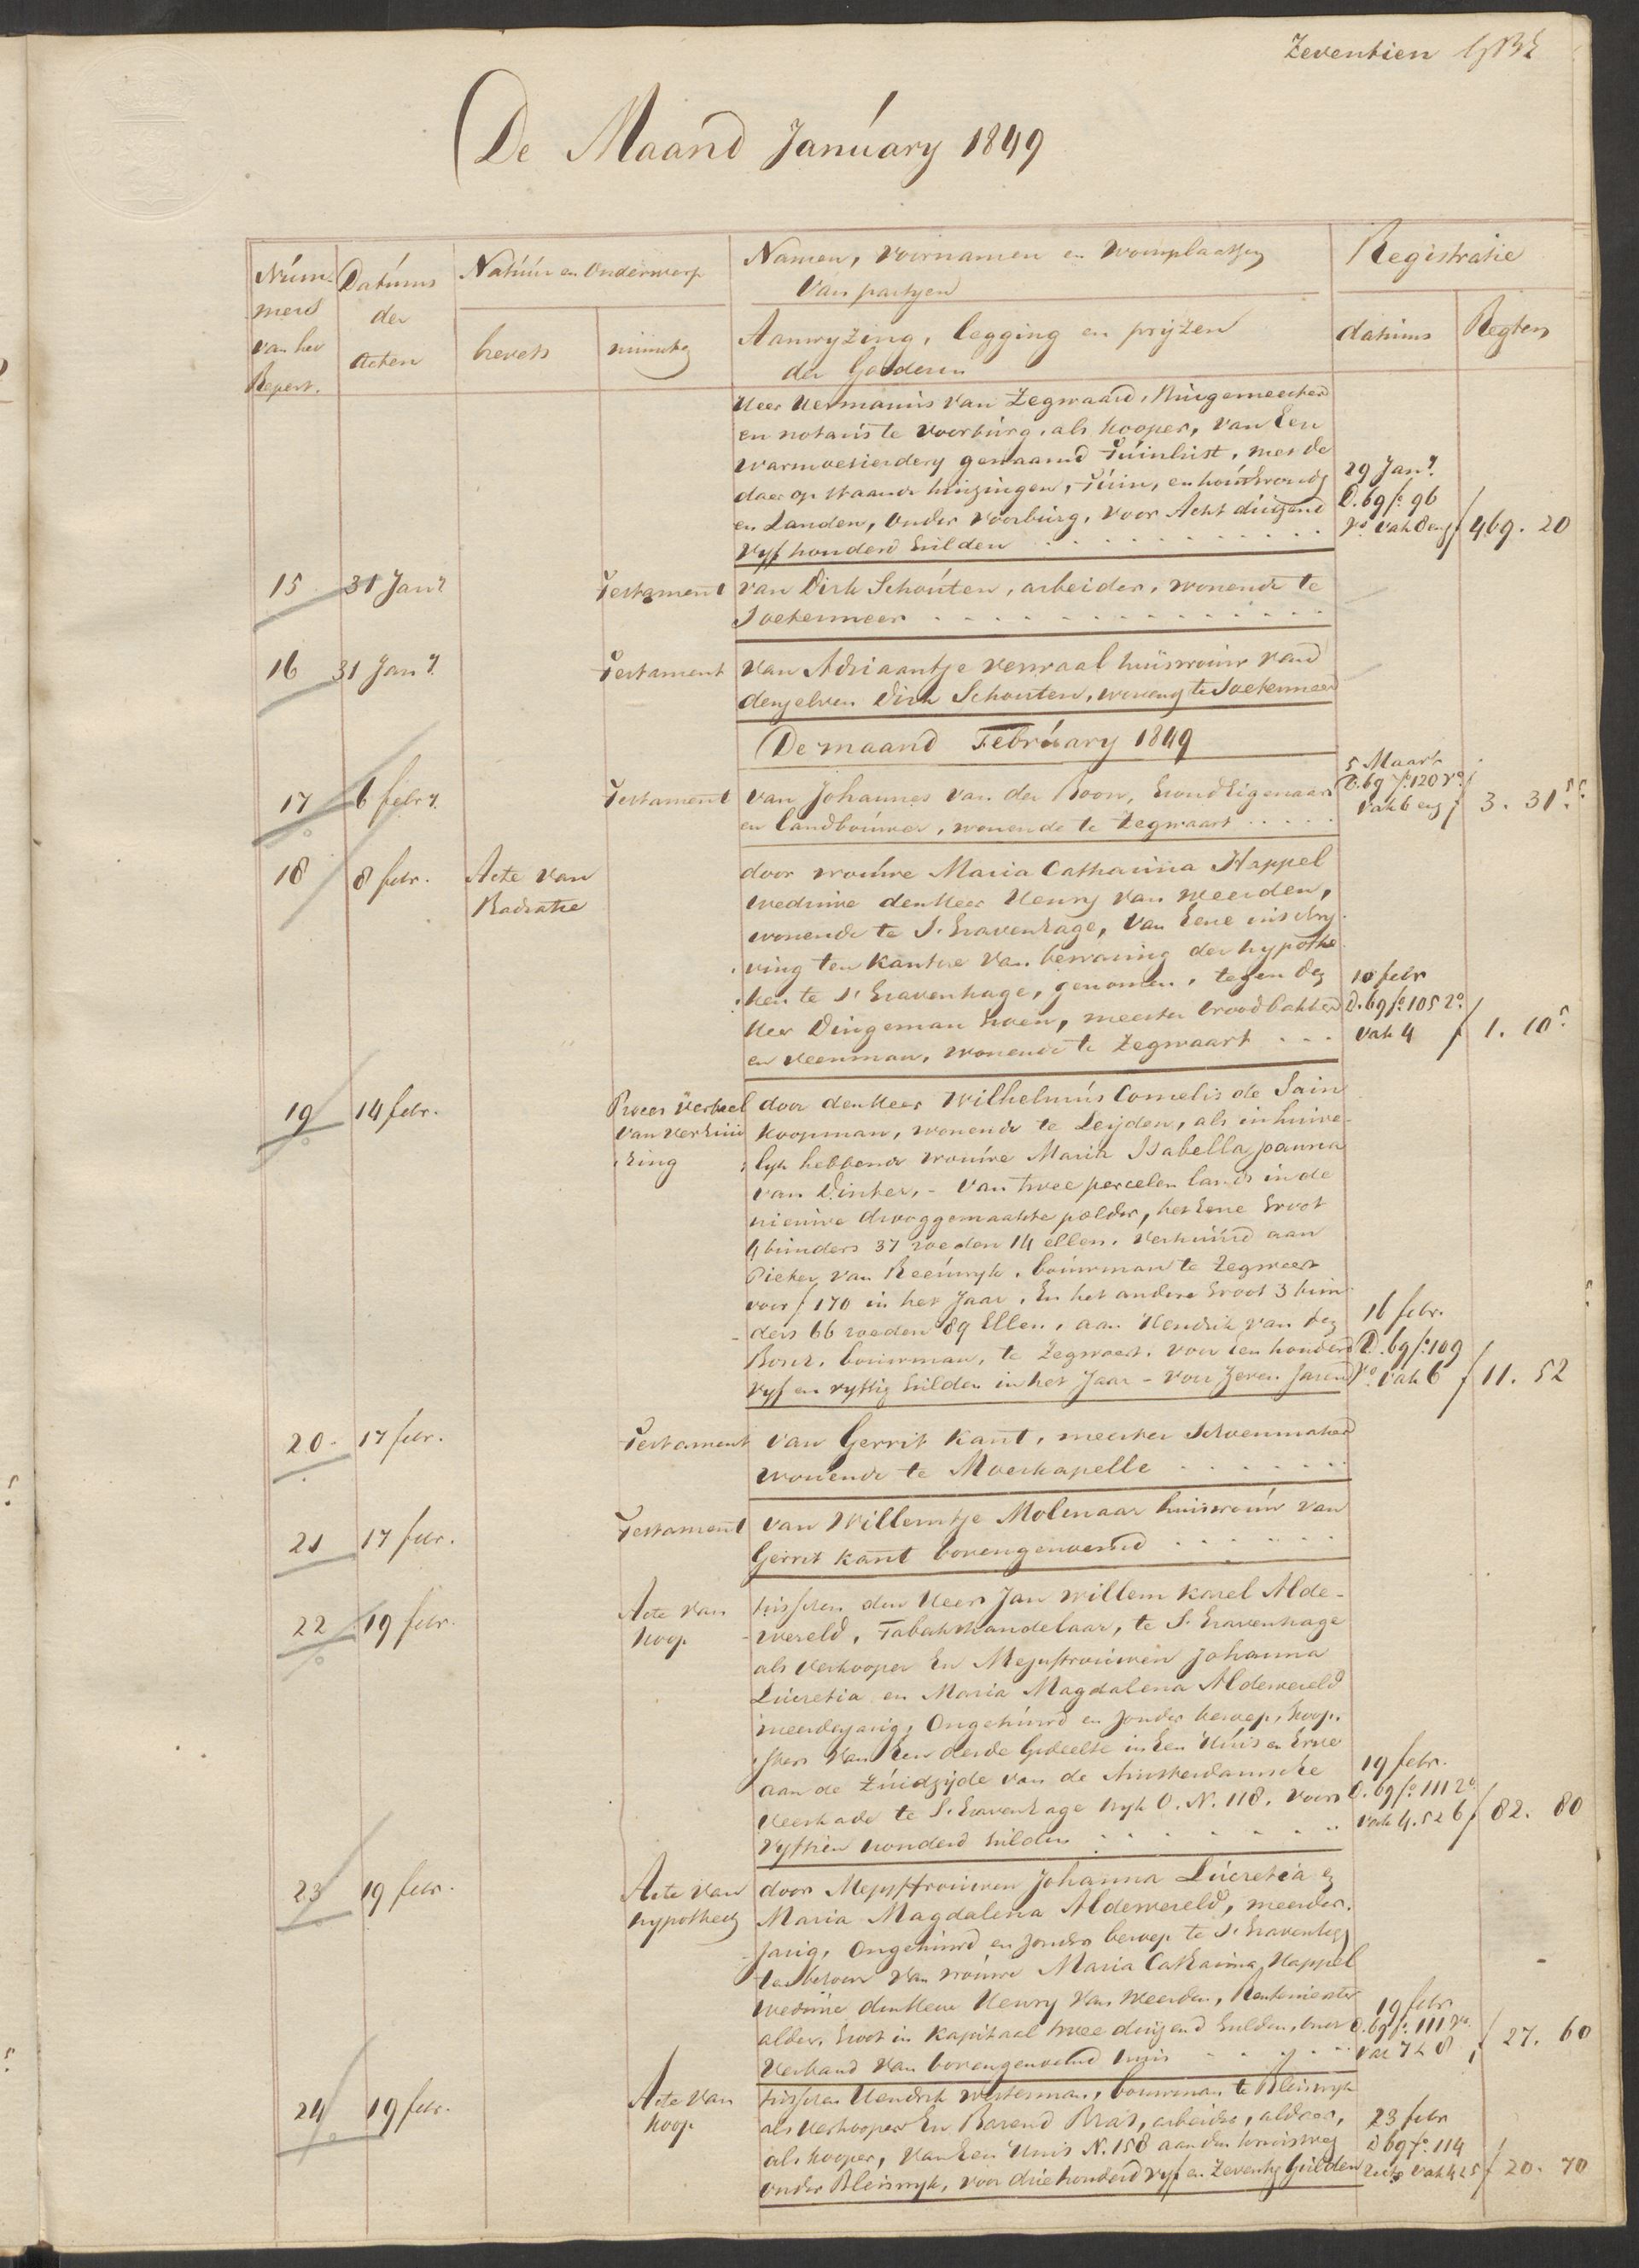 Zeventien
De Maand January 1849
Num-
mers
van het
Repert.
Datums
der
Acten
Natuur en Onderwerp
brevets
minuten
Namen, voornamen en woonplaatsen
van partyen
Aanwyzing, legging en pryzen
der Goederen
Registratie
datums
Regten
Heer Hermanus van Zegwaard, Burgemeester
en notaris te Voorburg, als kooper, van Een
warmoesierdery genaamd Tuinlust, met de
daar op staande huizingen, Tuin, en
en Landen, onder Voorburg, voor Acht duizend
vyf honderd Gulden
29 Jany.
D. 69 fo. 96
Vo. vak 8 en f 469. 20
15 31 Jany Testament van Dirk Schouten, arbeider, wonende te
Zoetermeer
16 31 Jany. Testament van Adriaantje Verwaal huisvrouw van
denzelven Dirk Schouten, wonend te Zoetermeer
De maand February 1849
17 6 febry. Testament van Johannes van der Boon, Grond Eigenaar
en landbouwer, wonende te Zegwaart
5 Maart
D. 69 fo. 120 ro.
vak 6 en f 3. 31.5
18 8 febr. Acte van
Radiatie
door vrouwe Maria Catharina Happel
weduwe den Heer Henry van Meerden,
wonende te S. Gravenhage, van Eene inschry-
ving ten kantore van bewaring der hypothe-
ken te S. Gravenhage, genomen, tegen den
Heer Dingeman Hoen, meester broodbakker
en veenman, wonende te Zegwaart
10 febr
D. 69 fo. 105 2o.
vak 4 f 1. 10.5
19 14 febr. Proces Verbael
van verhuu-
ring
door den Heer Wilhelmus Cornelis de Sain
koopman, wonende te Leyden, als in huwe-
lyk hebbende vrouwe Maria Isabella Joanna
van Dinter, - van twee percelen lands in de
nieuwe drooggemaakte polder, het Eene Groot
4 bunders 37 roeden 14 ellen. verhuurd aan
Pieter van Reeuwyk, bouwman te Zegwaart
voor f 170 in het Jaar. En het andere Groot 3 bun-
ders 66 roeden 89 Ellen, aan Hendrik van den
Bosch, bouwman, te Zegwaart. voor Een honderd
vyf en vyftig Gulden in het Jaar - voor Zeven Jaren
16 febr.
D. 69 fo. 109
Vo. vak 6 f 11. 52
20. 17 febr. Testament van Gerrit Kant, meester Schoenmaker
wonende te Moerkapelle
21 17 febr. Testament van Willemtje Molenaar huisvrouw van
Gerrit Kant bovengenoemd
22 19 febr. Acte van
koop
tusschen den Heer Jan Willem Karel Alde-
wereld, Tabakshandelaar, te S. Gravenhage
als verkooper En Mejuffrouwen Johanna
Lucretia en Maria Magdalena Aldewereld
meerderjarig, Ongehuwd en zonder beroep, koop-
sters van Een derde Gedeelte in Een Huis en Erve
aan de Zuidzyde van de Amsterdamsche
Veerkade te S. Gravenhage wyk O. N. 118. voor
vyftien honderd Gulden
19 febr.
D. 69 fo. 111 2o.
vak 4. 5 2 6 f 82. 80
23 19 febr. Acte van
hypotheek
door Mejuffrouwen Johanna Lucretia en
Maria Magdalena Aldewereld, meerder-
jarig, Ongehuwd en zonder beroep te S. Gravenhage
ten behoeve van vrouwe Maria Catharina Happel
weduwe den Heer Henry van Meerden, Rentenierster
aldaar. Groot in kapitaal twee duizend Gulden, onder
Verband van bovengenoemd huis
19 febr
D. 69 fo. 111 Vo.
vak 7 2 8 f 27. 60
24 19 febr. Acte van
koop
tusschen Hendrik Westerman, bouwman te Bleiswyk
als verkooper En Barend Bras, arbeider, aldaar,
als kooper, van Een Huis N. 158 aan den kruisweg
onder Bleiswyk, voor driehonderd vyf en Zeventig Gulden
23 febr
D 69 fo. 114
recto vak 4 2 5 f 20. 70